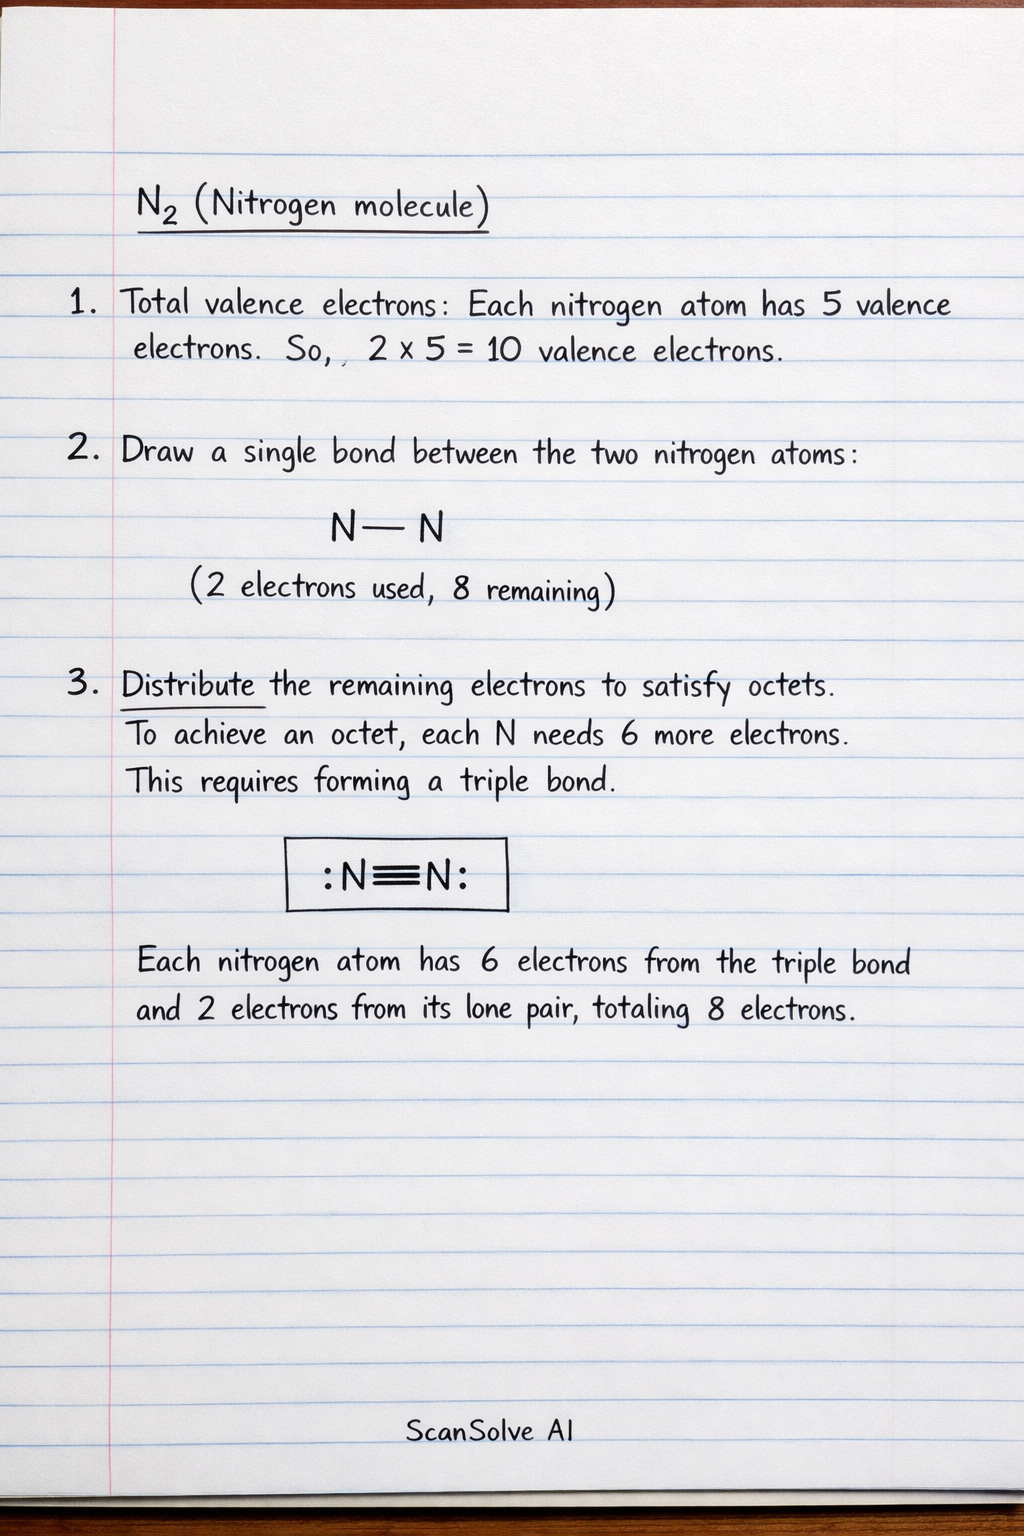 N₂ (Nitrogen molecule)
1. Total valence electrons: Each nitrogen atom has 5 valence
electrons. So, , 2 x 5 = 10 valence electrons.
2. Draw a single bond between the two nitrogen atoms:
N — N
(2 electrons used, 8 remaining)
3. Distribute the remaining electrons to satisfy octets.
To achieve an octet, each N needs 6 more electrons.
This requires forming a triple bond.
:N≡N:
Each nitrogen atom has 6 electrons from the triple bond
and 2 electrons from its lone pair, totaling 8 electrons.
ScanSolve AI